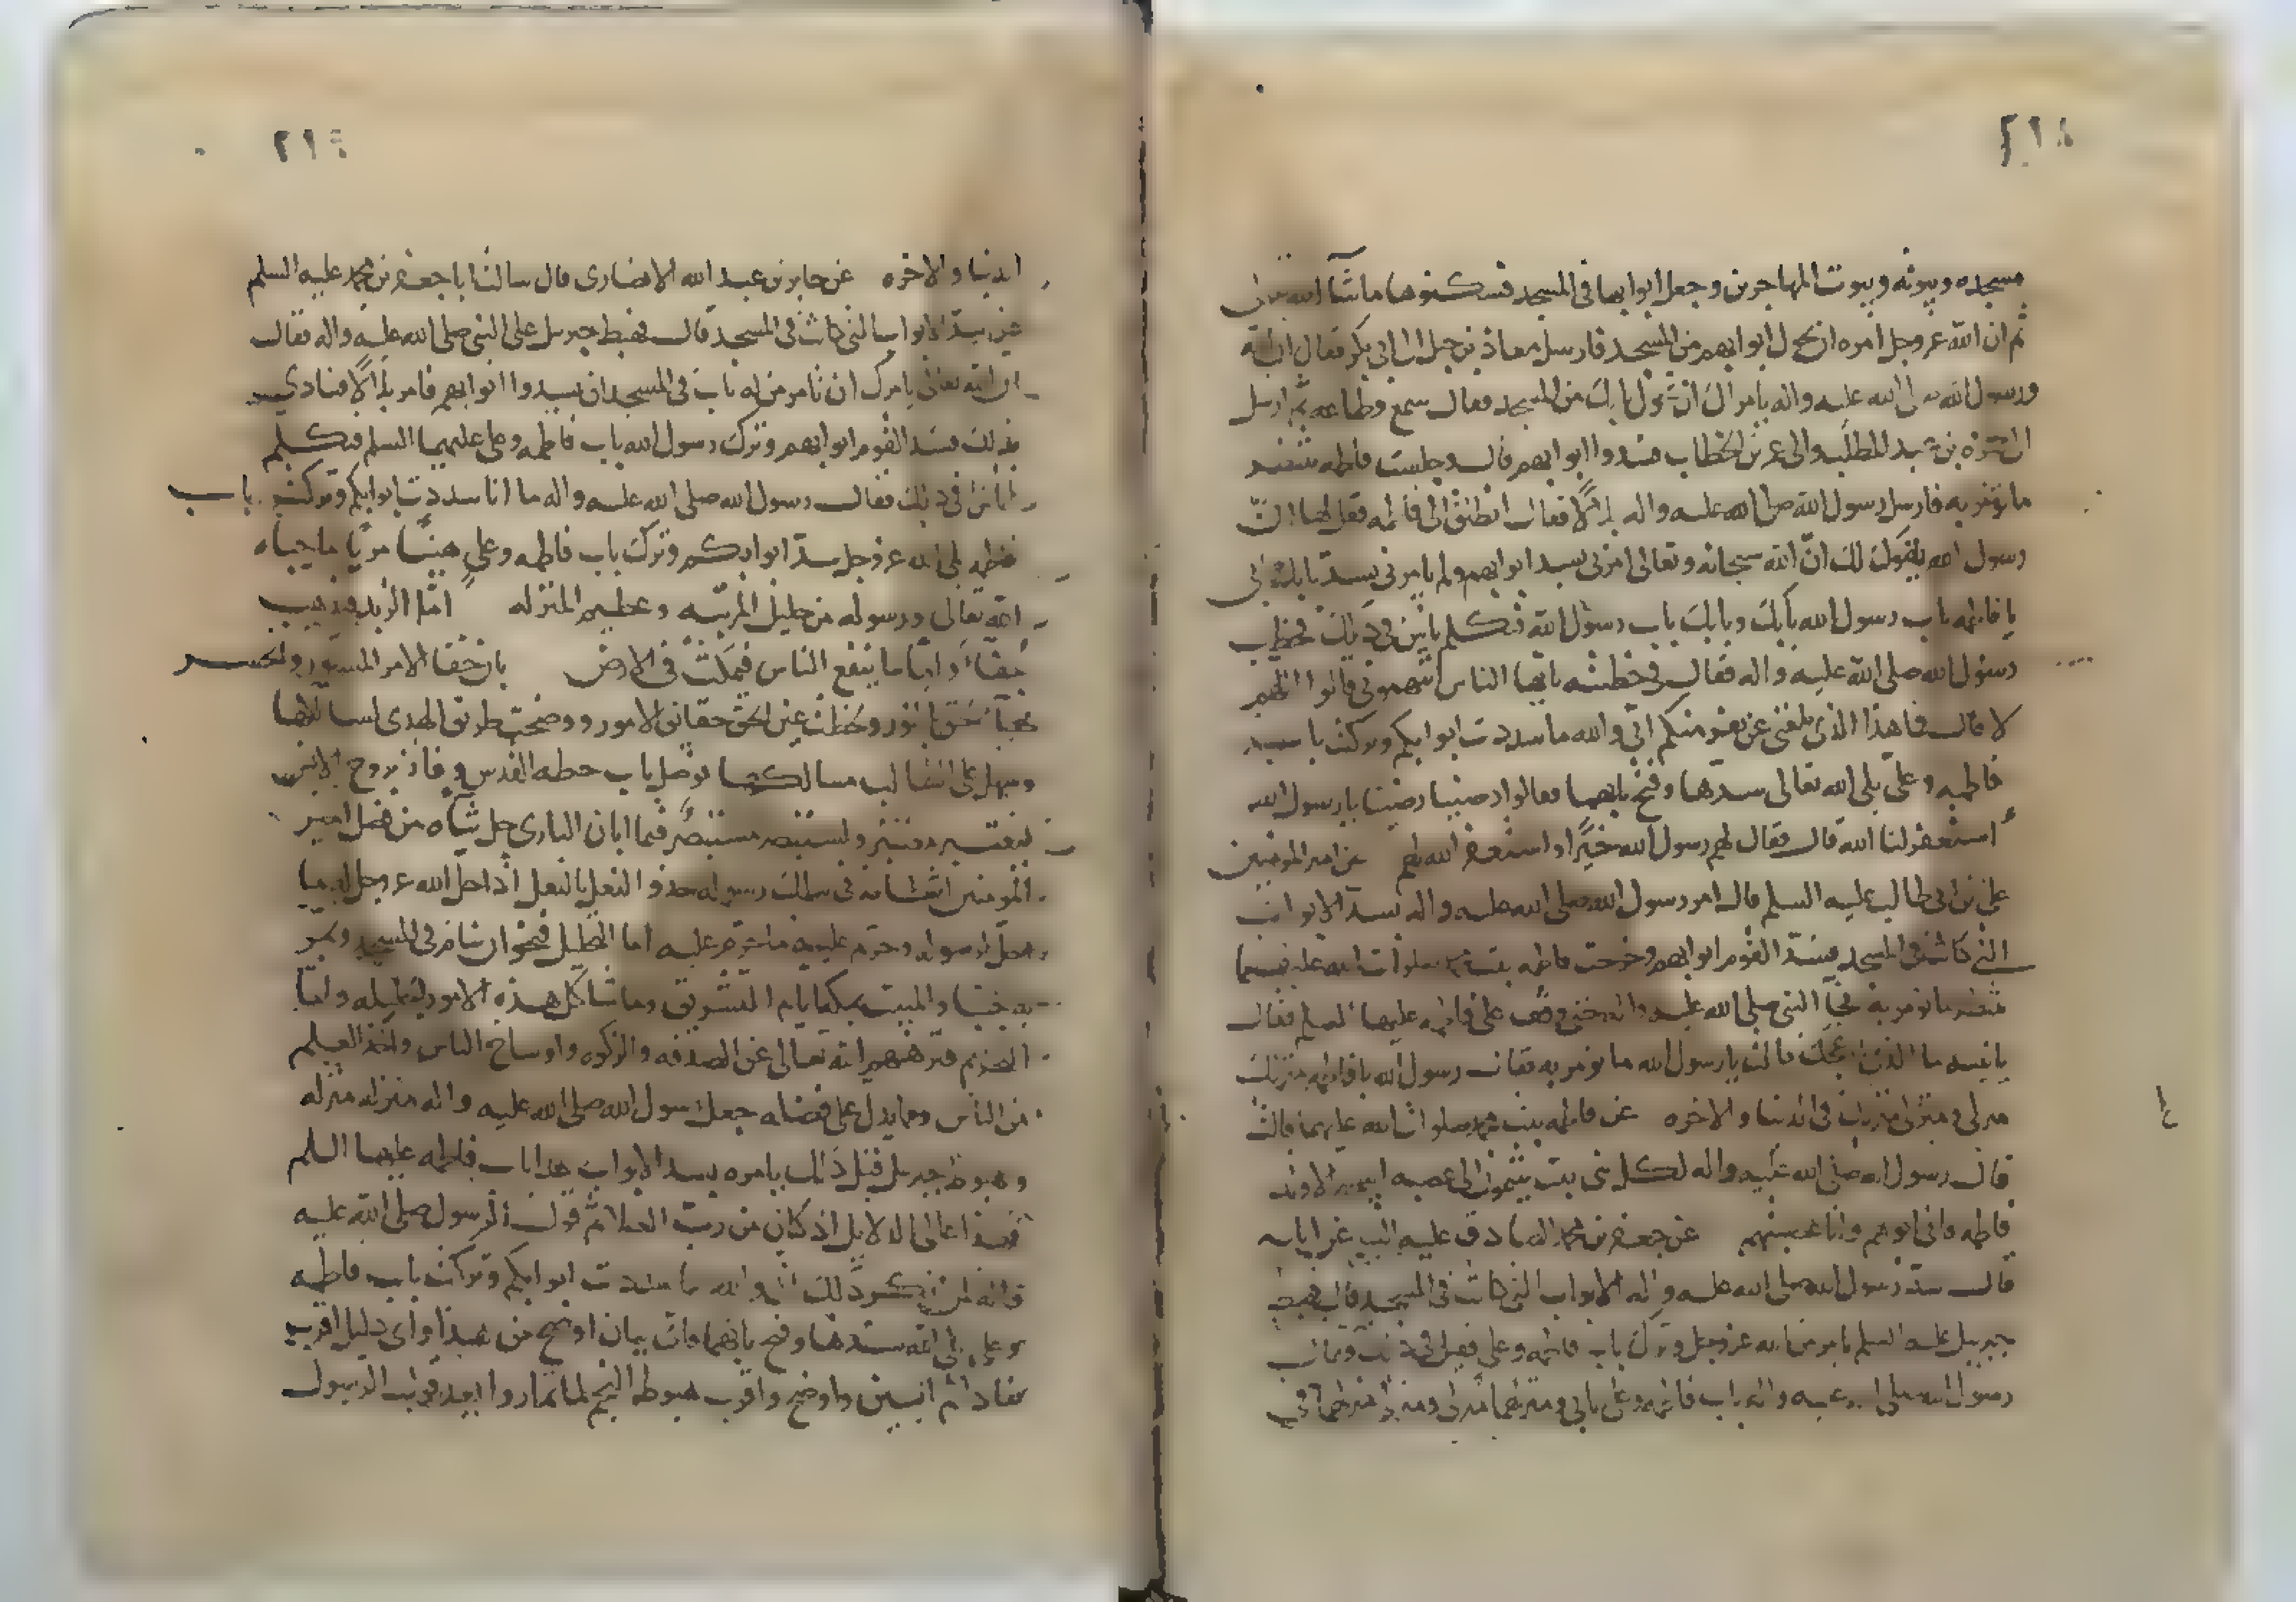 ٢١٨
مسجده وبيوته وبيوت المهاجرين وجعل ابوابها في المسجد فسكنوها ماشآ الله تعالى
ثم ان الله عز وجل امره ان يحول ابوابهم من المسجد فارسل معاذ بن جبل الى ابي بكر فقال ان الله
ورسول الله صلى الله عليه واله يامرانك ان تحول بابك من المسجد فقال سمع وطاعه ثم ارسل
الى حمزه بن عبد المطلب والى عمر بن الخطاب فسدوا ابوابهم قال وجلست فاطمه تنتظر
ما تؤمر به فارسل رسول الله صلى الله عليه واله بلالا فقال انطلق الى فاطمه فقل لها ان
رسول الله يقول لك ان الله سبحانه وتعالى امرني بسد ابوابهم ولم يامرني بسد بابك
يا فاطمه باب رسول الله بابك وبابك باب رسول الله فتكلم ناس في ذلك فخطب
رسول الله صلى الله عليه واله فقال في خطبته يا ايها الناس اتتهموني قالوا اللهم
لا قال فما هذا الذي بلغني عن بعض منكم اني والله ما سددت ابوابكم وتركت باب
فاطمه وعلي بلى الله تعالى سدها وفتح بابهما فقالوا رضينا رضينا يا رسول الله
استغفر لنا الله قال فقال لهم رسول الله خيرا واستغفر الله لهم عن امير المومنين
علي بن ابي طالب عليه السلم قال امر رسول الله صلى الله عليه واله بسد الابواب
التي كانت في المسجد فسد القوم ابوابهم وخرجت فاطمه بنت محمد صلوات الله عليهما
تنتظر ما تومر به فجآ النبي صلى الله عليه واله حتى وقف على فاطمه عليها السلم فقال
يا بنيه ما الذي قالت يا رسول الله ما نومر به فقال رسول الله يا فاطمه منزلك
منزلي ومنزلي منزلك في الدنيا والاخره عن فاطمه بنت محمد صلوات الله عليهما قالت
قال رسول الله صلى الله عليه واله لكل بني بنت ينتمون الى عصبه ابيهم الا ولد
فاطمه واني ابوهم وانا عصبتهم عن جعفر بن محمد الصادق عليه السلم عن ابايه
قال سد رسول الله صلى الله عليه واله الابواب التي كانت في المسجد قال فهبط
جبريل عليه السلم بامر من الله عز وجل وترك باب فاطمه وعلي فقيل في ذلك وقال
رسول الله صلى الله عليه واله باب فاطمه وعلي بابي ومنزلهما منزلي ومنزلي منزلهما في
٢١٩
الدنيا والاخره عن جابر بن عبد الله الانصاري قال سالت ابا جعفر بن محمد عليه السلم
عن سد الابواب التي كانت في المسجد قال فهبط جبريل على النبي صلى الله عليه واله فقال
ان الله تعالى يامرك ان تامر من له باب في المسجد ان يسدوا ابوابهم فامر بلالا فنادى
بذلك فسد القوم ابوابهم وترك رسول الله باب فاطمه وعلي عليهما السلم فتكلم
الناس في ذلك فقال رسول الله صلى الله عليه واله ما انا سددت ابوابكم وتركت باب
فاطمه بلى الله عز وجل سد ابوابكم وترك باب فاطمه وعلي هنيئا مريا ما حباه
الله تعالى ورسوله من جليل المرتبه وعظيم المنزله اما الزبد فيذهب
جفآء واما ما ينفع الناس فيمكث في الارض بان خفا الامر المستور
الحق حقايق الامور ووضحت طريق الهدى لسالكها
وسهل على الطالب مسالكها بوصل باب حطه القدس وفاز بروح الانس
فليعتبر معتبر وليستبصر مستبصر فيما ابان الباري جل شانه من فضل امير
المومنين في سالك رسوله حذو النعل بالنعل اذ احل الله عز وجل له ما
احل لرسوله وحرم عليه ما حرم عليه اما التحليل فنحو ان ينام في المسجد ويمر
به جنبا والمبيت بمكه ايام التشريق وما شاكل هذه الامور الجليله واما
التحريم فتنزيههم الله تعالى عن الصدقه والزكوه واوساخ الناس واخذ العلم
من الناس ومما يدل على فضله جعل رسول الله صلى الله عليه واله منزله منزله
وهبوط جبريل قبل ذلك يامره بسد الابواب عدا باب فاطمه عليها السلم
فهذا اعلى الدلايل اذ كان من رب العلا ثم قول الرسول صلى الله عليه
واله لمن انكر ذلك اني والله ما سددت ابوابكم وتركت باب فاطمه
وعلي بلى الله سدها وفتح بابهما فاي بيان اوضح من هذا واي دليل اقرب
واوضح واقرب هبوط النجم لما تماروا بعد قول الرسول